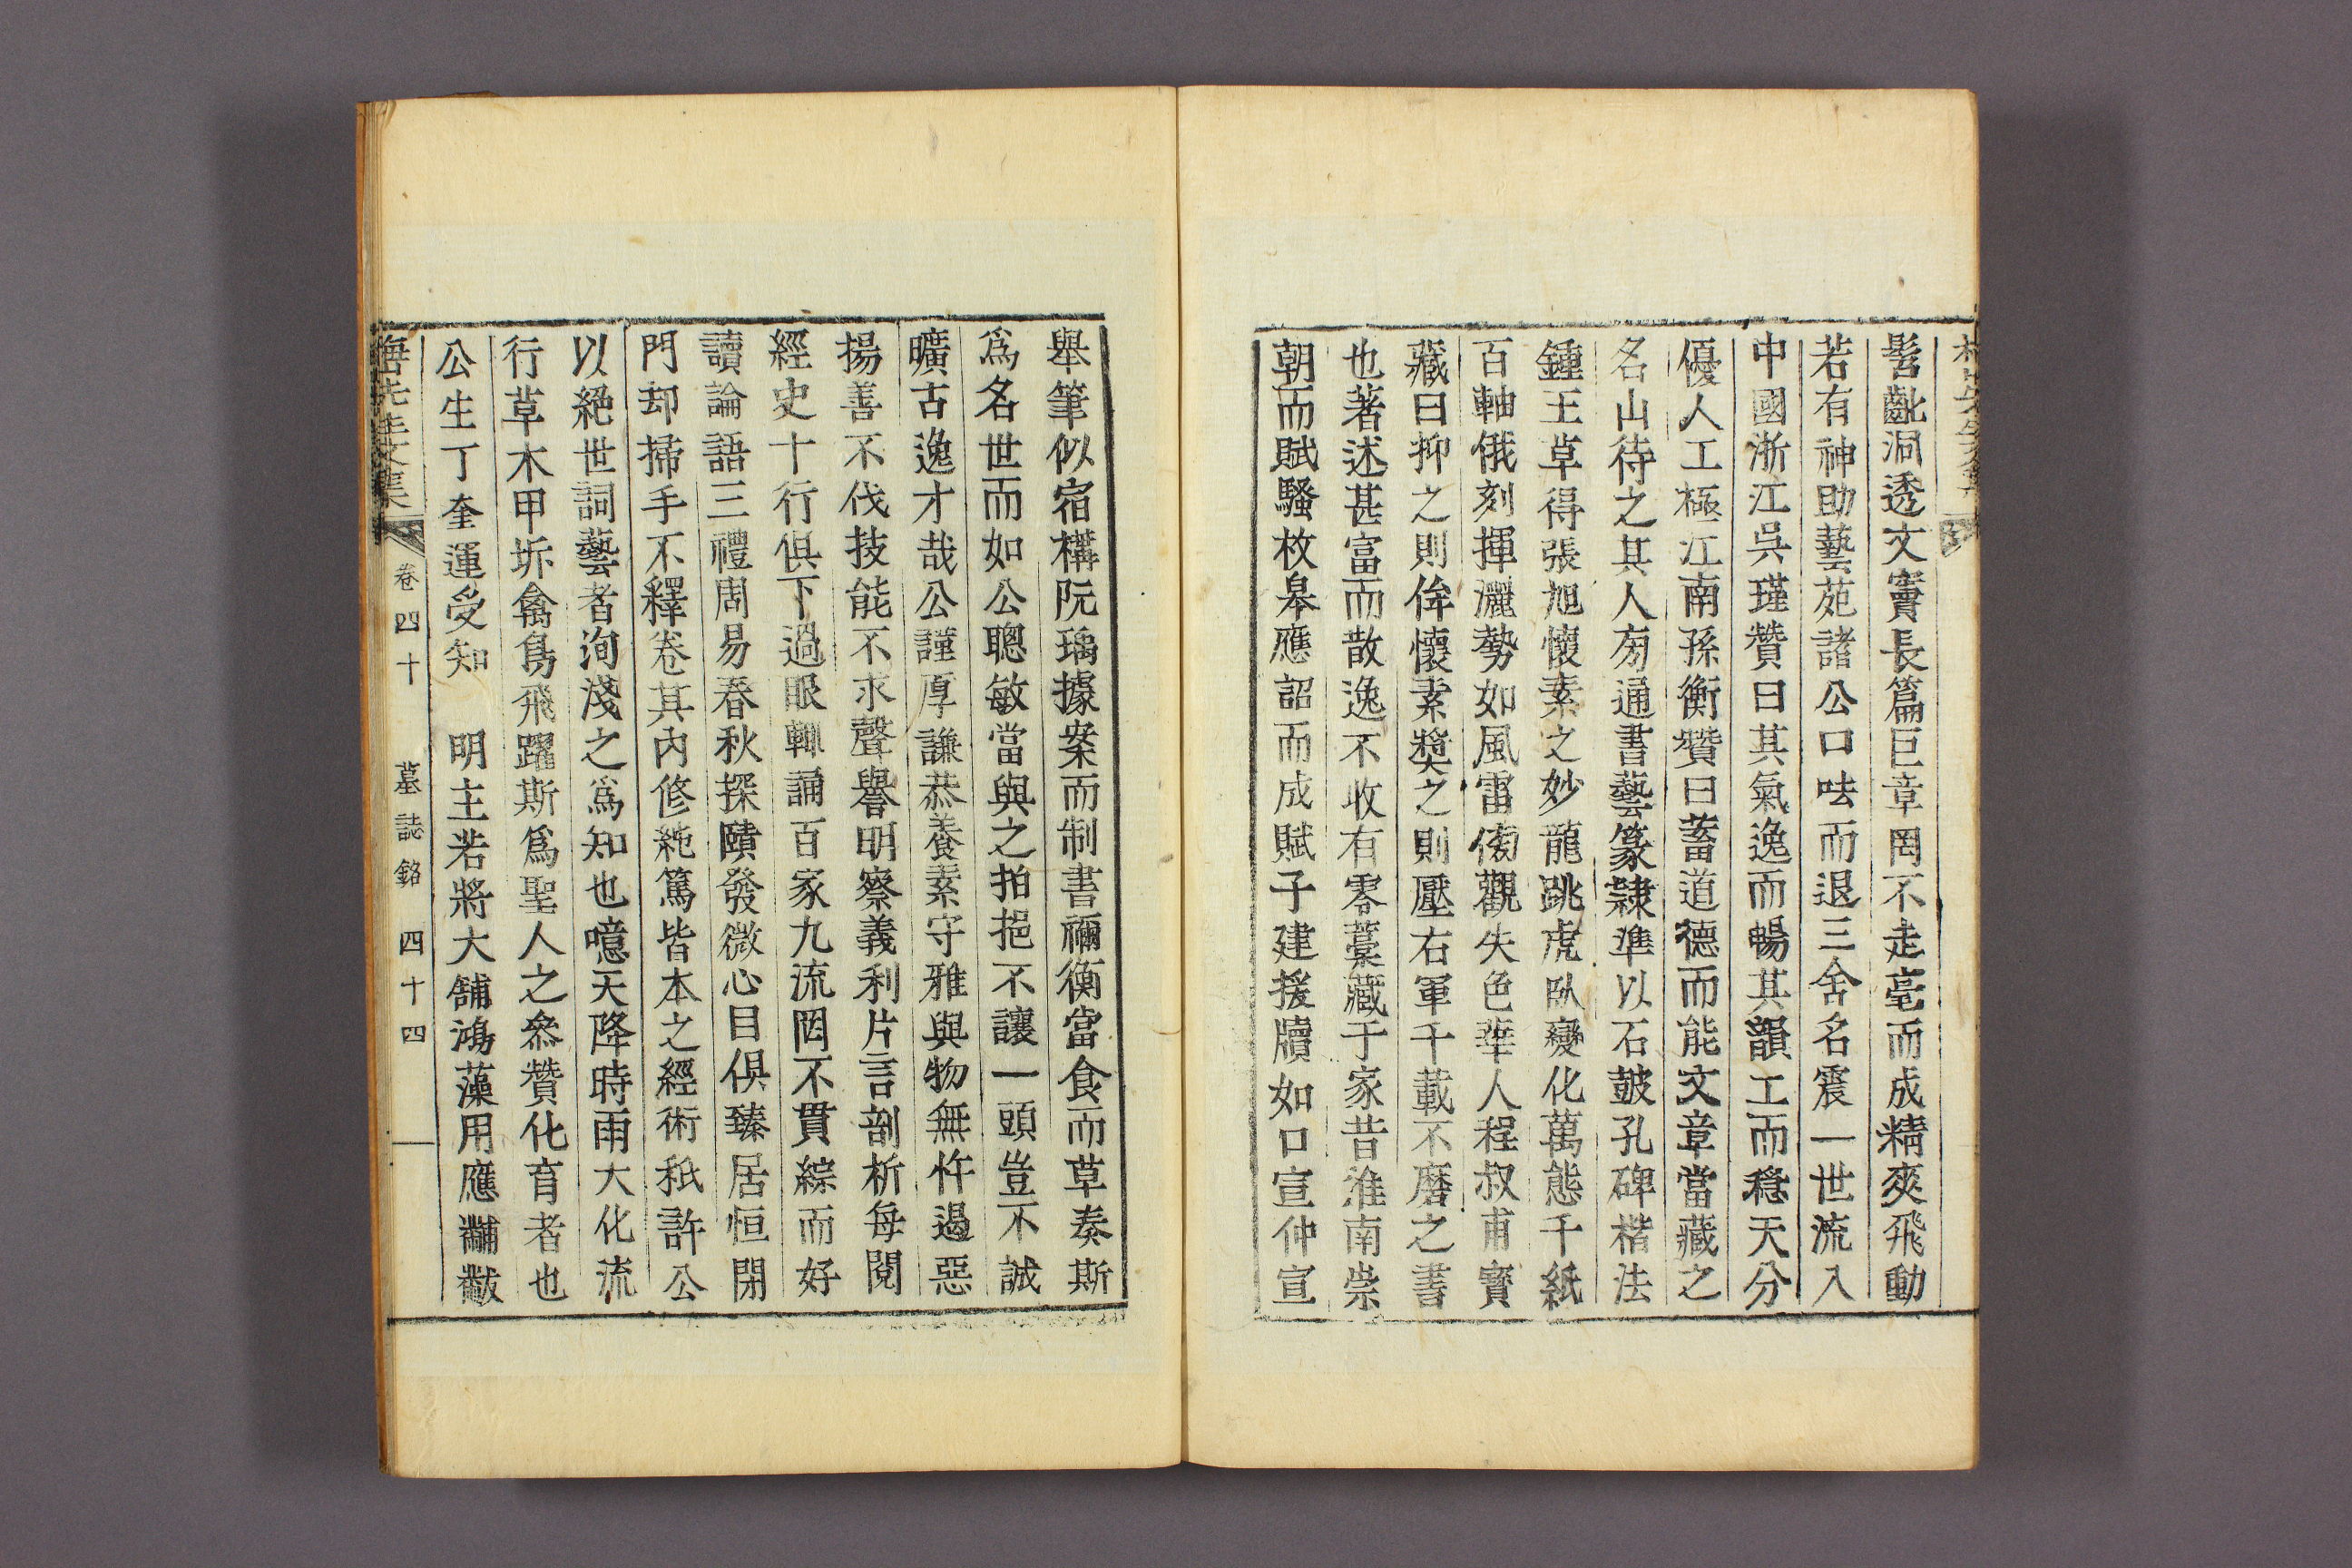 髫齔洞透文竇長篇巨章罔不走毫而成精爽飛動
若有神助藝苑諸公口呿而退三舍名震一世流入
中國浙江吳瑾贊曰其氣逸而暢其韻工而穩天分
優人工極江南孫衡贊曰蓄道德而能文章當藏之
名山待之其人旁通書藝篆隷準以石皷孔碑楷法
鍾王草得張旭懷素之妙龍跳虎臥變化萬態千紙
百軸俄刻揮灑勢如風雷傍觀失色華人程叔甫寳
藏曰抑之則侔懷素奬之則壓右軍千載不磨之書
也著述甚富而散逸不收有零藁藏于家昔淮南崇
朝而賦騷枚皋應詔而成賦子建援牘如口宣仲宣
舉筆似宿構阮瑀據案而制書禰衡當食而草奏斯
爲名世而如公聰敏當與之拍挹不讓一頭豈不誠
曠古逸才哉公謹厚謙恭養素守雅與物無忤遏惡
揚善不伐技能不求聲譽明察義利片言剖析每閱
經史十行俱下過眼輒誦百家九流罔不貫綜而好
讀論語三禮周易春秋探賾發微心目俱臻居恒閉
門却掃手不釋卷其內修純篤皆本之經術秖許公
以絕世詞藝者洵淺之爲知也噫天降時雨大化流
行草木甲坼禽鳥飛躍斯爲聖人之叅贊化育者也
公生丁奎運受知　明主若將大舖鴻藻用應黼黻
先生文集　卷四十　墓誌銘　四十四